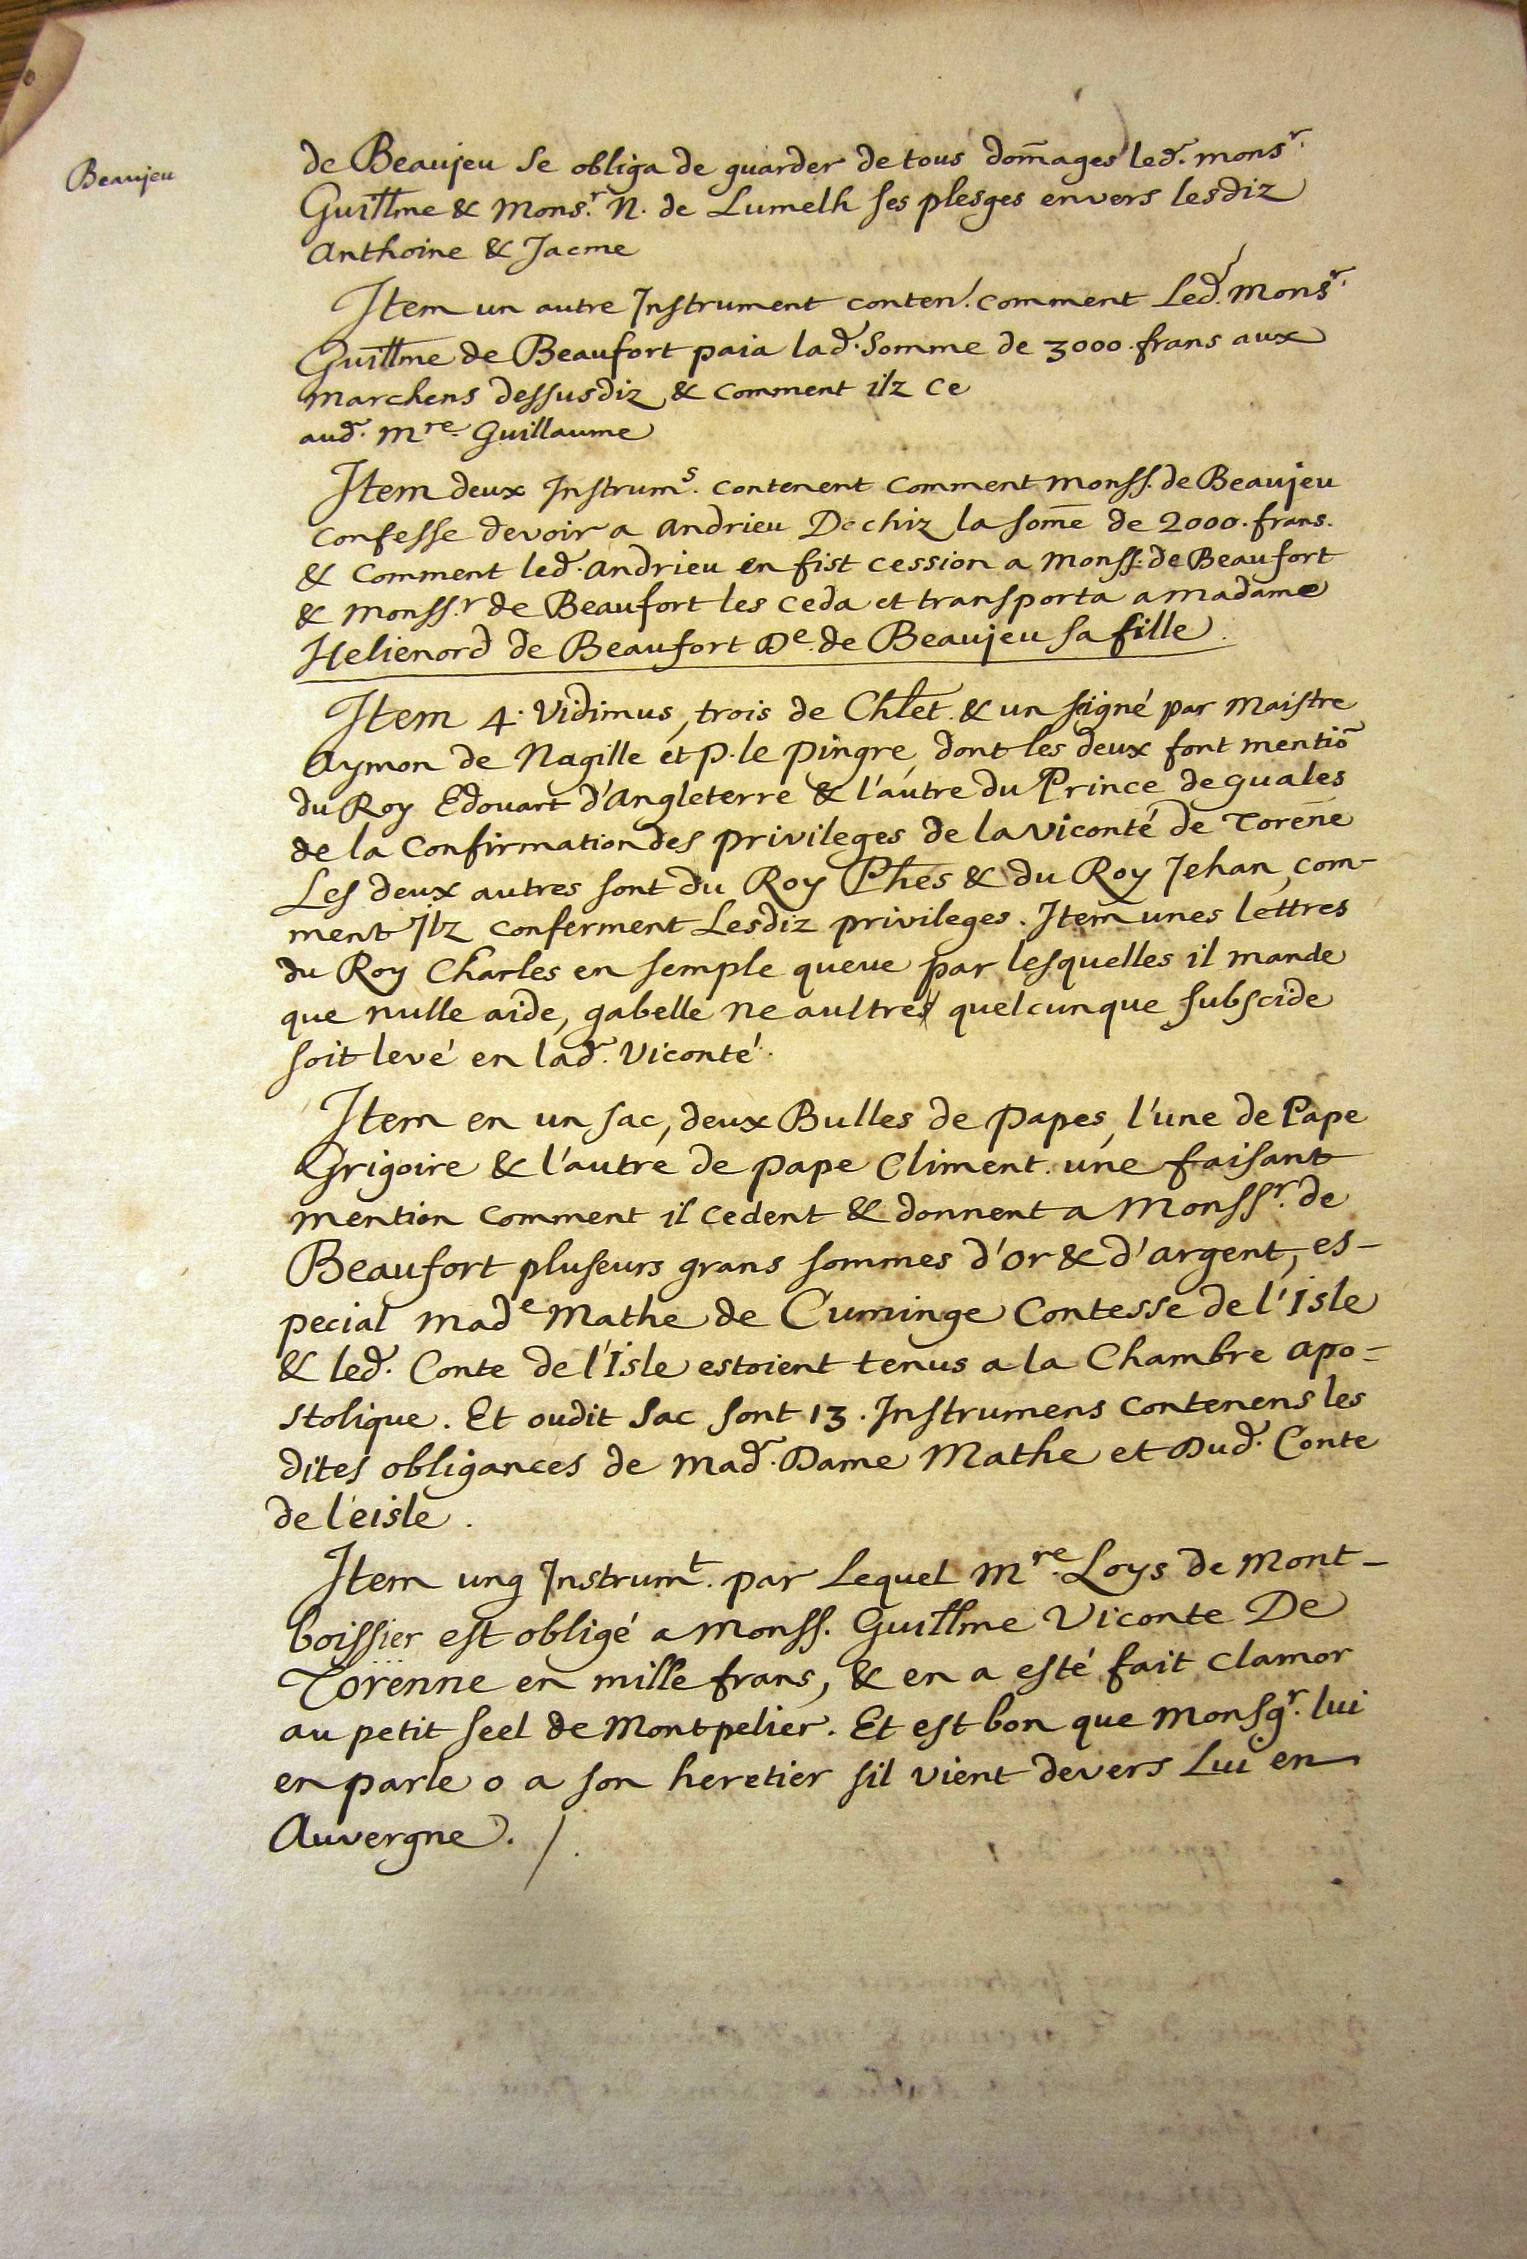 Beaujeu
de Beaujeu se obliga de guarder de tous dom̃ages led. monsr.
Guillme & Monsr. N. de Lumelh ses plesges envers lesdiz
Anthoine & Jacme
Item un autre Instrument conten!. comment Led. Monsr.
Guillme de Beaufort paia lad. somme de 3000. frans aux
marchens dessusdiz, & comment ilz ce
aud. Mre. Guillaume
Item deux Instrums. contenent comment monss. de Beaujeu
confesse devoir a Andrieu Dechiz la som̃e de 2000. frans.
& comment led. Andrieu en fist cession a Monss. de Beaufort
& Monss.r de Beaufort les ceda et transporta a madame
Helienord de Beaufort De. de Beaujeu sa fille.
Item 4. Vidimus, trois de Chlet. & un signé par Maistre
Aymon de Nagille et P. le Pingre, dont les deux font mentiõ
du Roy Edouart d'Angleterre & l'autre du Prince de Guales
de la Confirmation des privileges de la viconté de Toreñe
Les deux autres sont du Roy Phes & du Roy Jehan, com-
ment Ilz conferment Lesdiz privileges. Item unes lettres
du Roy Charles en semple queue par lesquelles il mande
que nulle aide, gabelle ne aultre quelcunque subscide
soit levé en lad. Viconté.
Item en un sac, deux Bulles de Papes, l'une de Pape
Grigoire & l'autre de Pape Climent. une faisant
mention comment il cedent & donnent a Monssr. de
Beaufort pluseurs grans sommes d'or & d'argent, es-
pecial made Mathe de Cuminge Contesse de l'Isle
& led. Conte de l'Isle estoient tenus a la Chambre apo=
stolique. Et oudit Sac sont 13. Instrumens contenens les
dites obligances de Mad. Dame Mathe et Dud. Conte
de l'eisle.
Item ung Instrumt. par Lequel Mre. Loys de Mont-
boissier est obligé a Monss. Guillme Viconte De
Torenne en mille frans, & en a esté fait clamor
au petit seel de Montpelier. Et est bon que Monsgr. lui
en parle o a son heretier sil vient devers Lui en
Auvergne. /.